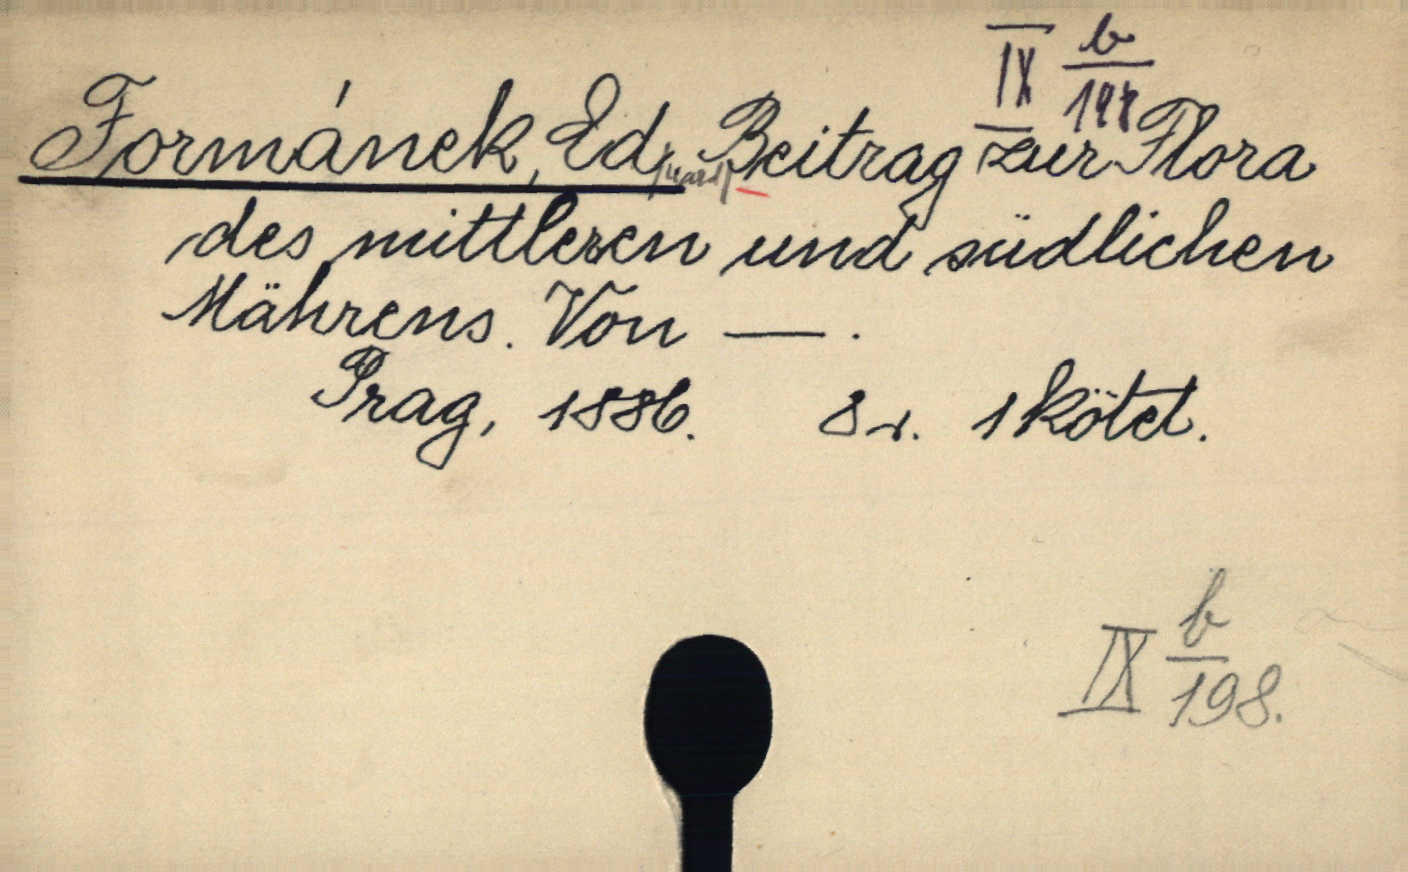 IX b/198
Formánek, Ed(uard) Beitrag zur Flora
des mittleren und südlichen
Mährens. Von — .
Prag, 1886. 8r. 1 kötet.
IX b/198.